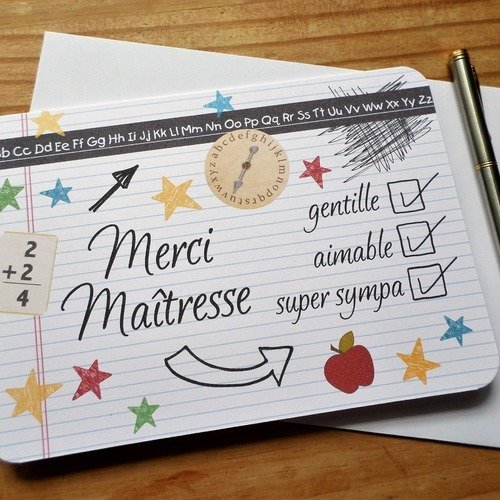 Bb Cc Dd Ee Ff Gg Hh Ii Jj Kk Ll Mm Nn Oo Pp Qq Rr Ss Tt Uu Vv Ww Xx Yy Zz
abcdefghijklmnopqrstuvwxyz
gentille
aimable
super sympa
Merci
Maîtresse
2
+2
4